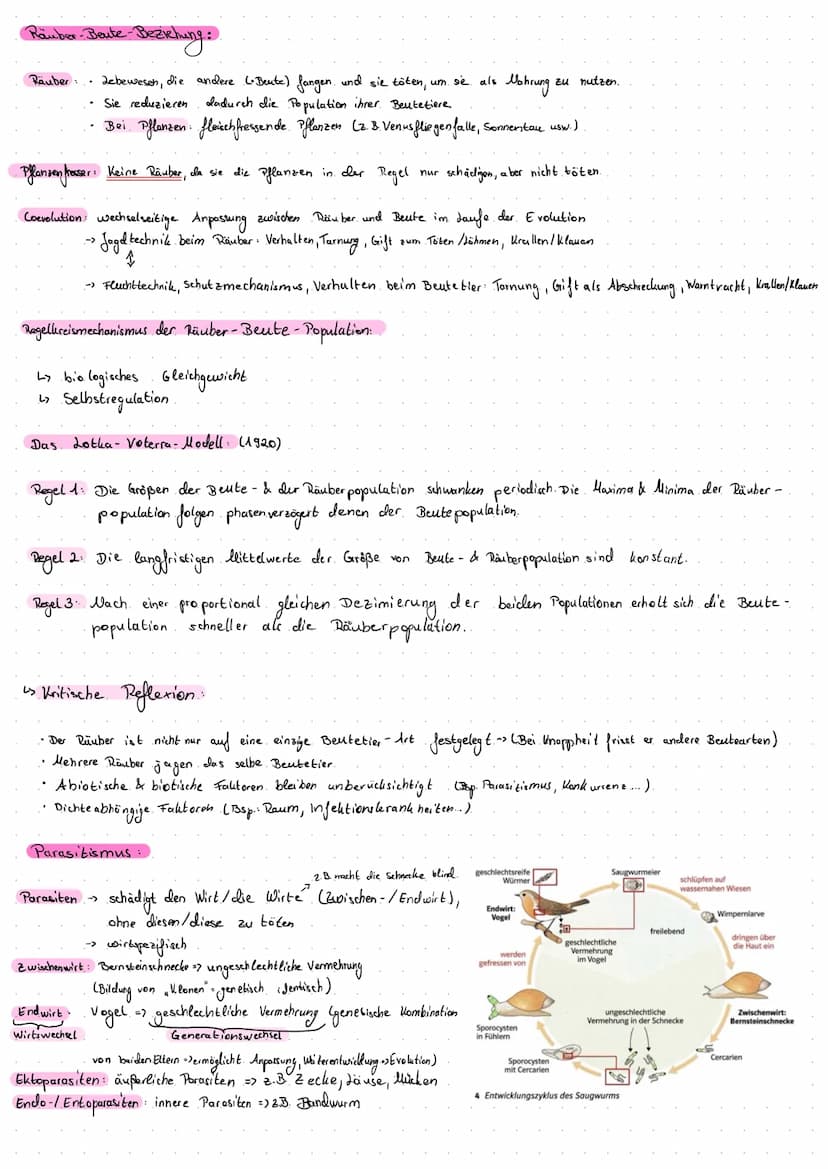 Räuber-Beute-Beziehung:
Räuber: • Lebewesen, die andere (→Beute) fangen und sie töten, um sie als Nahrung zu nutzen.
• Sie reduzieren dadurch die Population ihrer Beutetiere
• Bei Pflanzen: fleischfressende Pflanzen (z.B. Venusfliegenfalle, Sonnentau usw.)
Pflanzenfresser: Keine Räuber, da sie die Pflanzen in der Regel nur schädigen, aber nicht töten.
Coevolution: wechselseitige Anpassung zwischen Räuber und Beute im Laufe der Evolution
-> Jagdtechnik beim Räuber: Verhalten, Tarnung, Gift zum Töten/Lähmen, Krallen/Klauen
↕
-> Fluchttechnik, Schutzmechanismus, Verhalten beim Beutetier: Tarnung, Gift als Abschreckung, Warntracht, Krallen/Klauen
Regelkreismechanismus der Räuber-Beute-Population:
↳ biologisches Gleichgewicht
↳ Selbstregulation
Das Lotka-Voterra-Modell: (1920)
Regel 1: Die Größen der Beute- & der Räuberpopulation schwanken periodisch. Die Maxima & Minima der Räuber-
population folgen phasenverzögert denen der Beutepopulation.
Regel 2: Die langfristigen Mittelwerte der Größe von Beute- & Räuberpopulation sind konstant.
Regel 3: Nach einer proportional gleichen Dezimierung der beiden Populationen erholt sich die Beute-
population schneller als die Räuberpopulation.
↳ Kritische Reflexion:
• Der Räuber ist nicht nur auf eine einzige Beutetier-Art festgelegt -> (Bei Knappheit frisst er andere Beutearten)
• Mehrere Räuber jagen das selbe Beutetier
• Abiotische & biotische Faktoren bleiben unberücksichtigt (Bsp. Parasitismus, Konkurrenz...)
• Dichteabhängige Faktoren (Bsp.: Raum, Infektionskrankheiten...)
Parasitismus:
z.B. macht die Schnecke blind
Parasiten -> schädigt den Wirt/die Wirte (Zwischen-/Endwirt),
ohne diesen/diese zu töten
-> wirtspezifisch
Zwischenwirt: Bernsteinschnecke => ungeschlechtliche Vermehrung
(Bildung von „Klonen" = genetisch identisch)
Endwirt: Vogel => geschlechtliche Vermehrung (genetische Kombination
Wirtswechsel Generationswechsel
von beiden Eltern => ermöglicht Anpassung, Weiterentwicklung => Evolution)
Ektoparasiten: äußerliche Parasiten => z.B. Zecke, Läuse, Mücken
Endo-/Entoparasiten: innere Parasiten => z.B. Bandwurm
geschlechtsreife
Würmer
Saugwurmeier
schlüpfen auf
wassernahen Wiesen
Endwirt:
Vogel
Wimpernlarve
freilebend
geschlechtliche
Vermehrung
im Vogel
dringen über
die Haut ein
werden
gefressen von
ungeschlechtliche
Vermehrung in der Schnecke
Zwischenwirt:
Bernsteinschnecke
Sporocysten
in Fühlern
Cercarien
Sporocysten
mit Cercarien
4 Entwicklungszyklus des Saugwurms